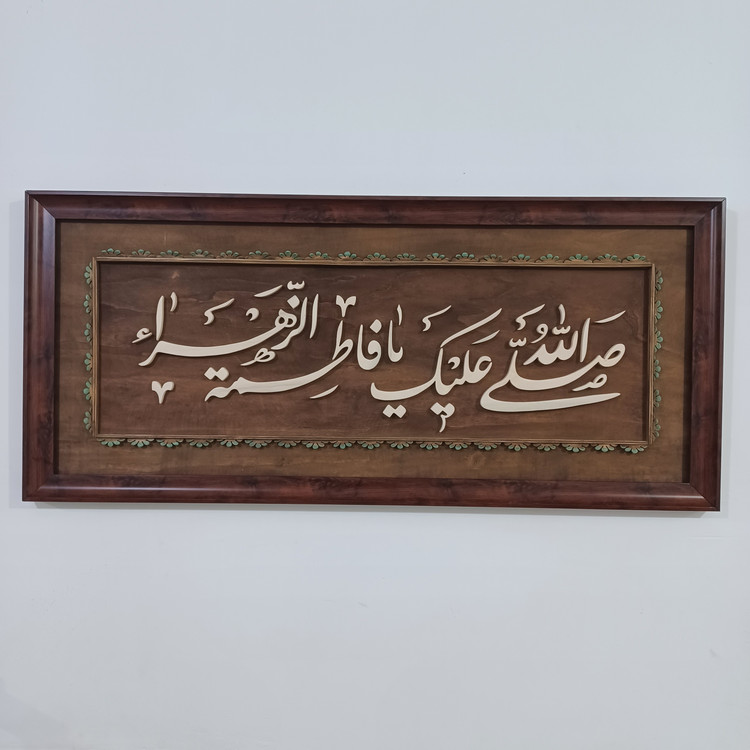 صلّی الله علیک یا فاطمة الزّهراء